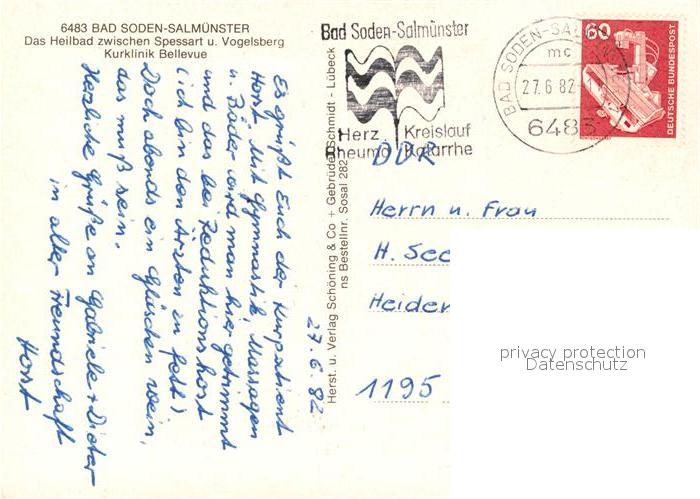 6483 BAD SODEN-SALMÜNSTER
Das Heilbad zwischen Spessart u. Vogelsberg
Kurklinik Bellevue
Es grüßt Euch der Kurpatient
Horst. Mit Gymnastik, Massagen
u. Bäder wird man hier getrimmt
und das bei Reduktionskost
(ich bin den Ärzten zu fett)
Doch abends ein Gläschen Wein,
das muß sein.
Herzliche Grüße an Gabriele + Dieter
in alter Freundschaft
Horst
27.6.82
Herst. u. Verlag Schöning & Co + Gebrüder Schmidt - Lübeck
ns Bestellnr. Sosal 282
Bad Soden-Salmünster
Herz Kreislauf
Rheuma Katarrhe
BAD SODEN-SAL
mc
27.6.82
6483
60
DEUTSCHE BUNDESPOST
DDR
Herrn u. Frau
H. See
Heiden
1195
privacy protection
Datenschutz